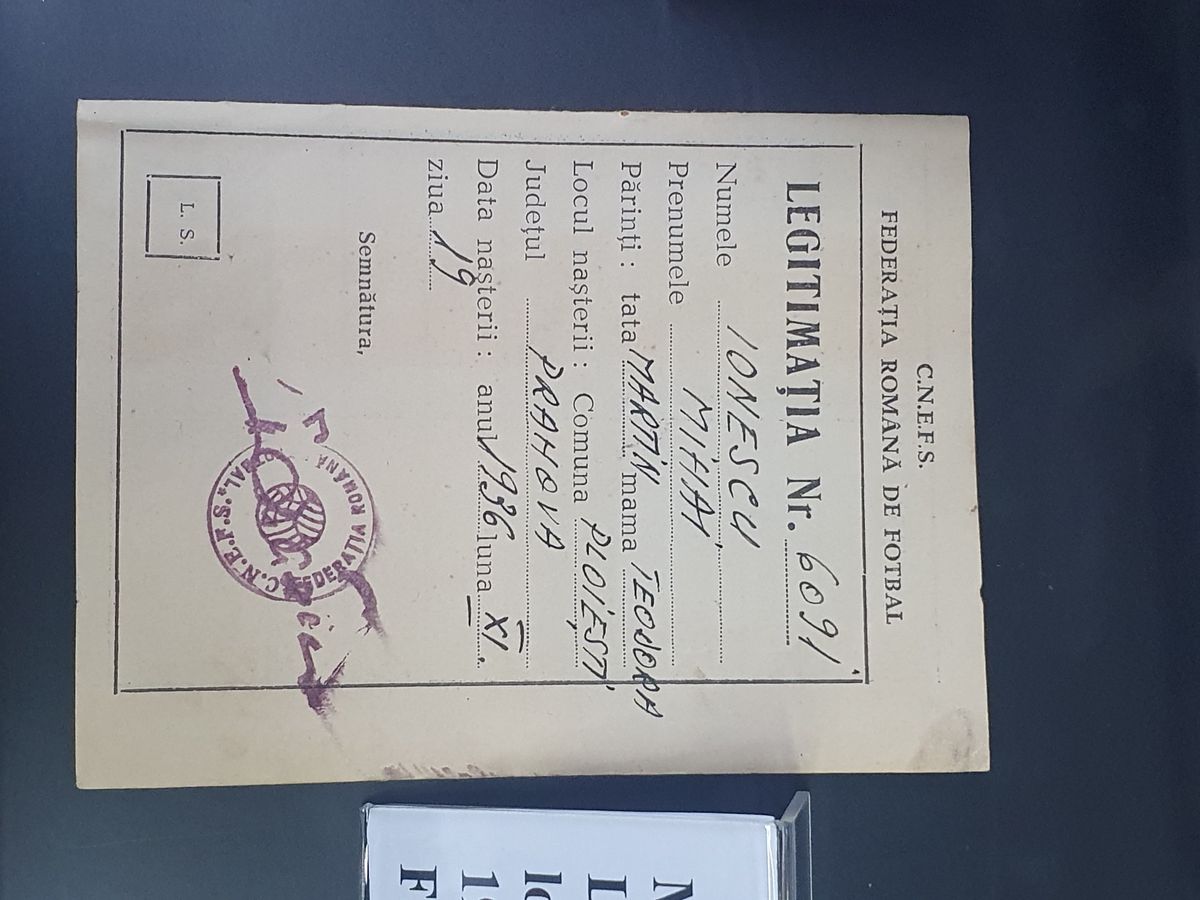 C.N.E.F.S.
FEDERAȚIA ROMÂNĂ DE FOTBAL
LEGITIMAȚIA Nr. 6091
Numele IONESCU
Prenumele MIHAI
Părinți : tata MARTIN mama TEODORA
Locul nașterii : Comuna PLOIEȘTI
Județul PRAHOVA
Data nașterii : anul 1936 luna XI.
ziua 19
Semnătura,
L. S.
C.N.E.F.S. FEDERAȚIA ROMÂNĂ